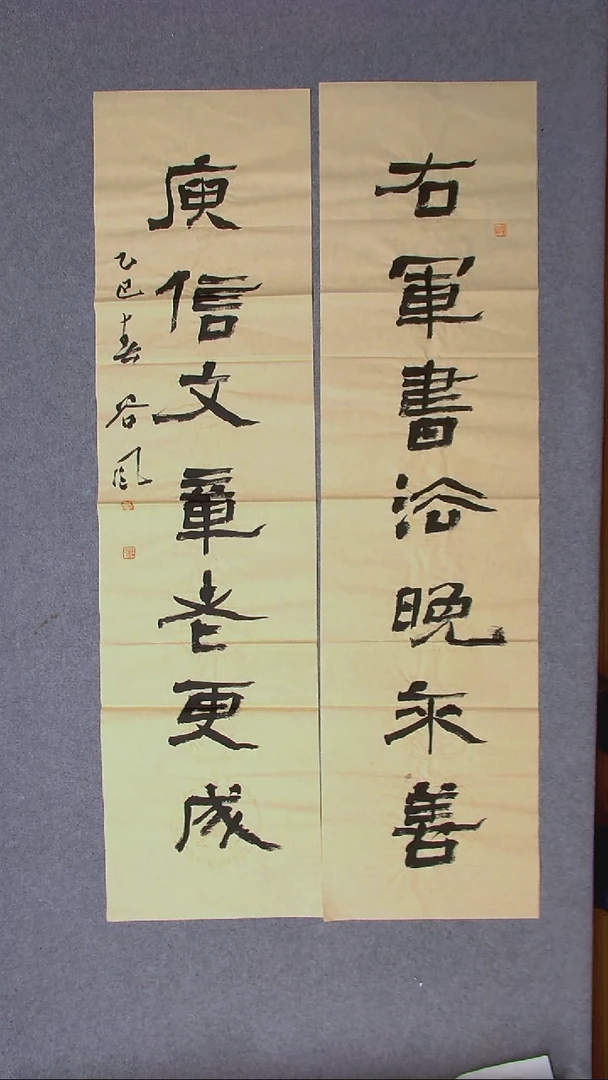 右軍書法晚年善
庾信文章老更成
乙巳春 谷风